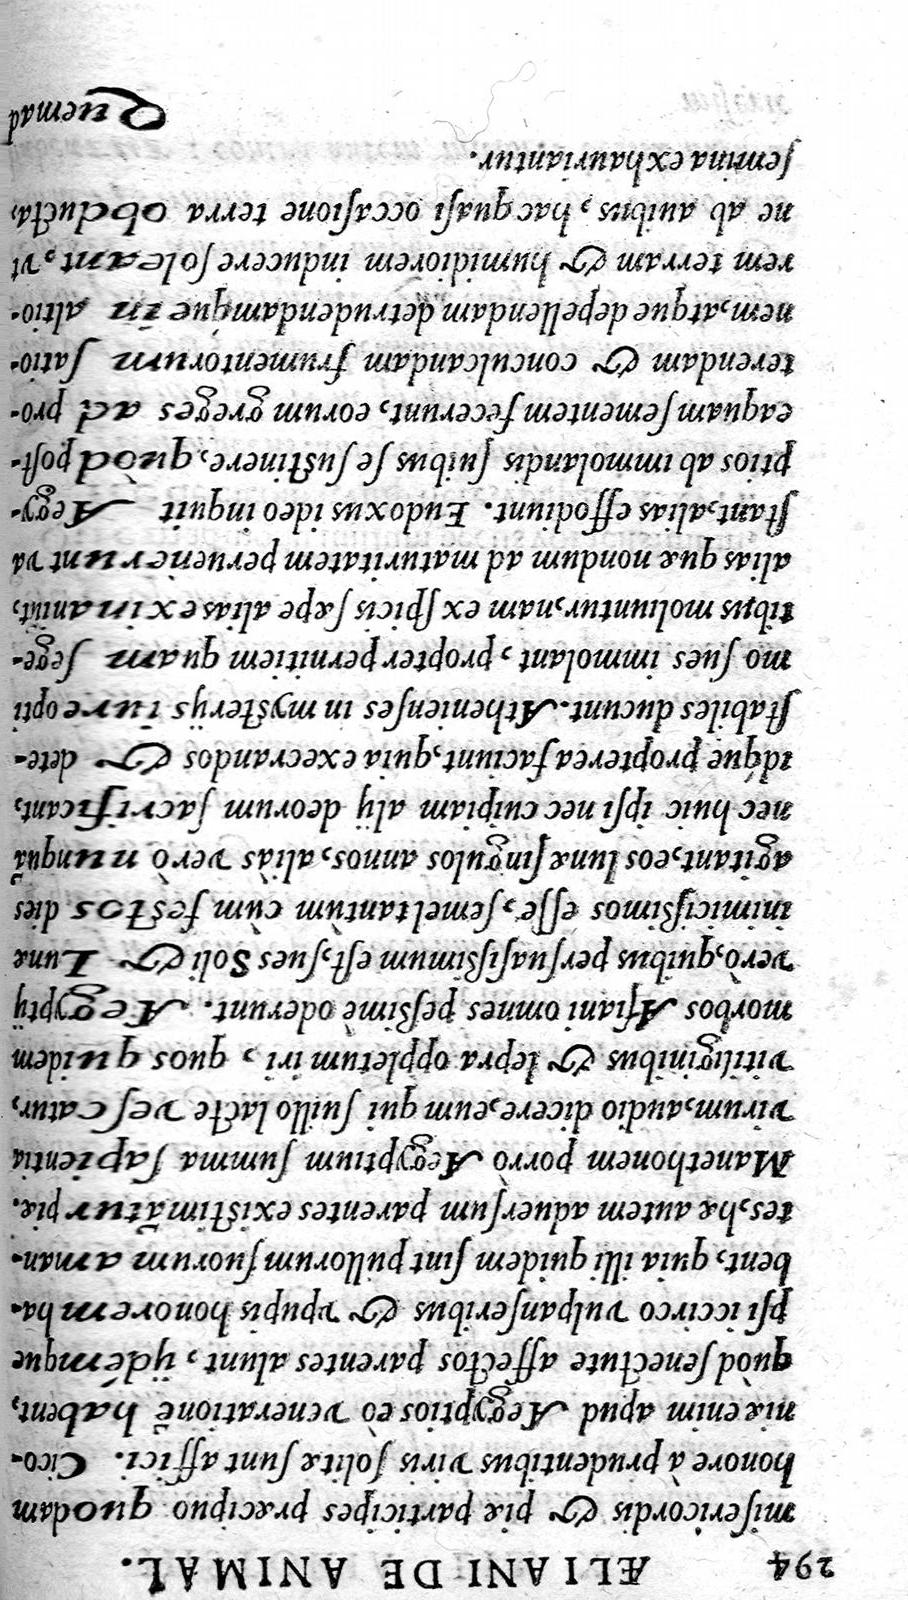 294 ÆLIANI DE ANIMAL.
misericordis & piæ participes præcipuo quodam
honore à prudentibus viris solitæ sunt affici. Cico-
niæ enim apud Aegyptios eò venerationē habent,
quòd senectute affectos parentes alunt, ijdémque
psi iccirco vulpanseribus & vpupis honorem ha-
bent, quia illi quidem sint pullorum suorum aman-
tes, hæ autem aduersum parentes existimātur piæ.
Manethonem porrò Aegyptium summa sapientia
virum, audio dicere, eum, qui suillo lacte vescatur,
vitiliginibus & lepra oppletum iri, quos quidem
morbos Asiani omnes peßimè oderunt. Aegyptij
verò, quibus persuasißimum est, sues Soli & Lunæ
inimicißimos esse, semel tantùm cùm festos dies
agitant, eos lunæ singulos annos, aliàs verò nunquā
nec huic ipsi nec cuipiam alij deorum sacrificant,
idque propterea faciunt, quia execrandos & dete-
stabiles ducunt. Athenienses in mysterijs iure opti
mo sues immolant, propter pernitiem quam sege-
tibus moliuntur, nam ex spicis sæpe alias exinaniūt,
alias quæ nondum ad maturitatem peruenerunt va
stant, alias effodiunt. Eudoxus ideo inquit Aegy-
ptios ab immolandis suibus se sustinere, quòd post-
eaquam sementem fecerunt, eorum greges ad pro-
terendam & conculcandam frumentorum satio-
nem, atque depellendam detrudendamque in altio-
rem terram & humidiorem inducere soleant, vt
ne ab auibus, hac quasi occasione terra obducta,
semina exhauriantur.
Quemad